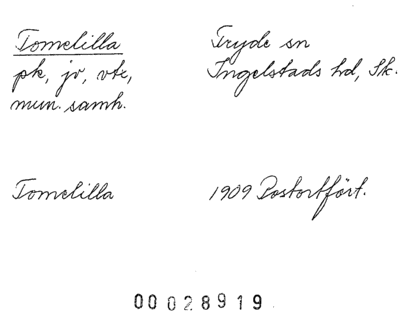 Tomelilla Tryde sn
pk, jv, vte, Ingelstads hd, Sk.
mun. samh.
Tomelilla 1909 Postortfört.
00028919